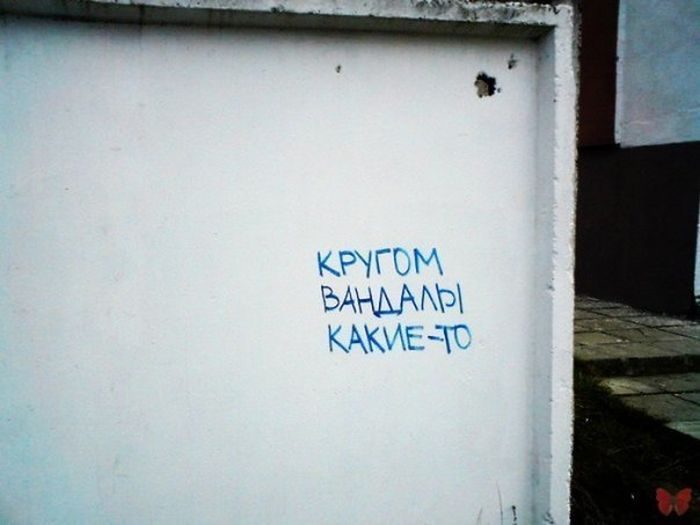 КРУГОМ
ВАНДАЛЫ
КАКИЕ-ТО